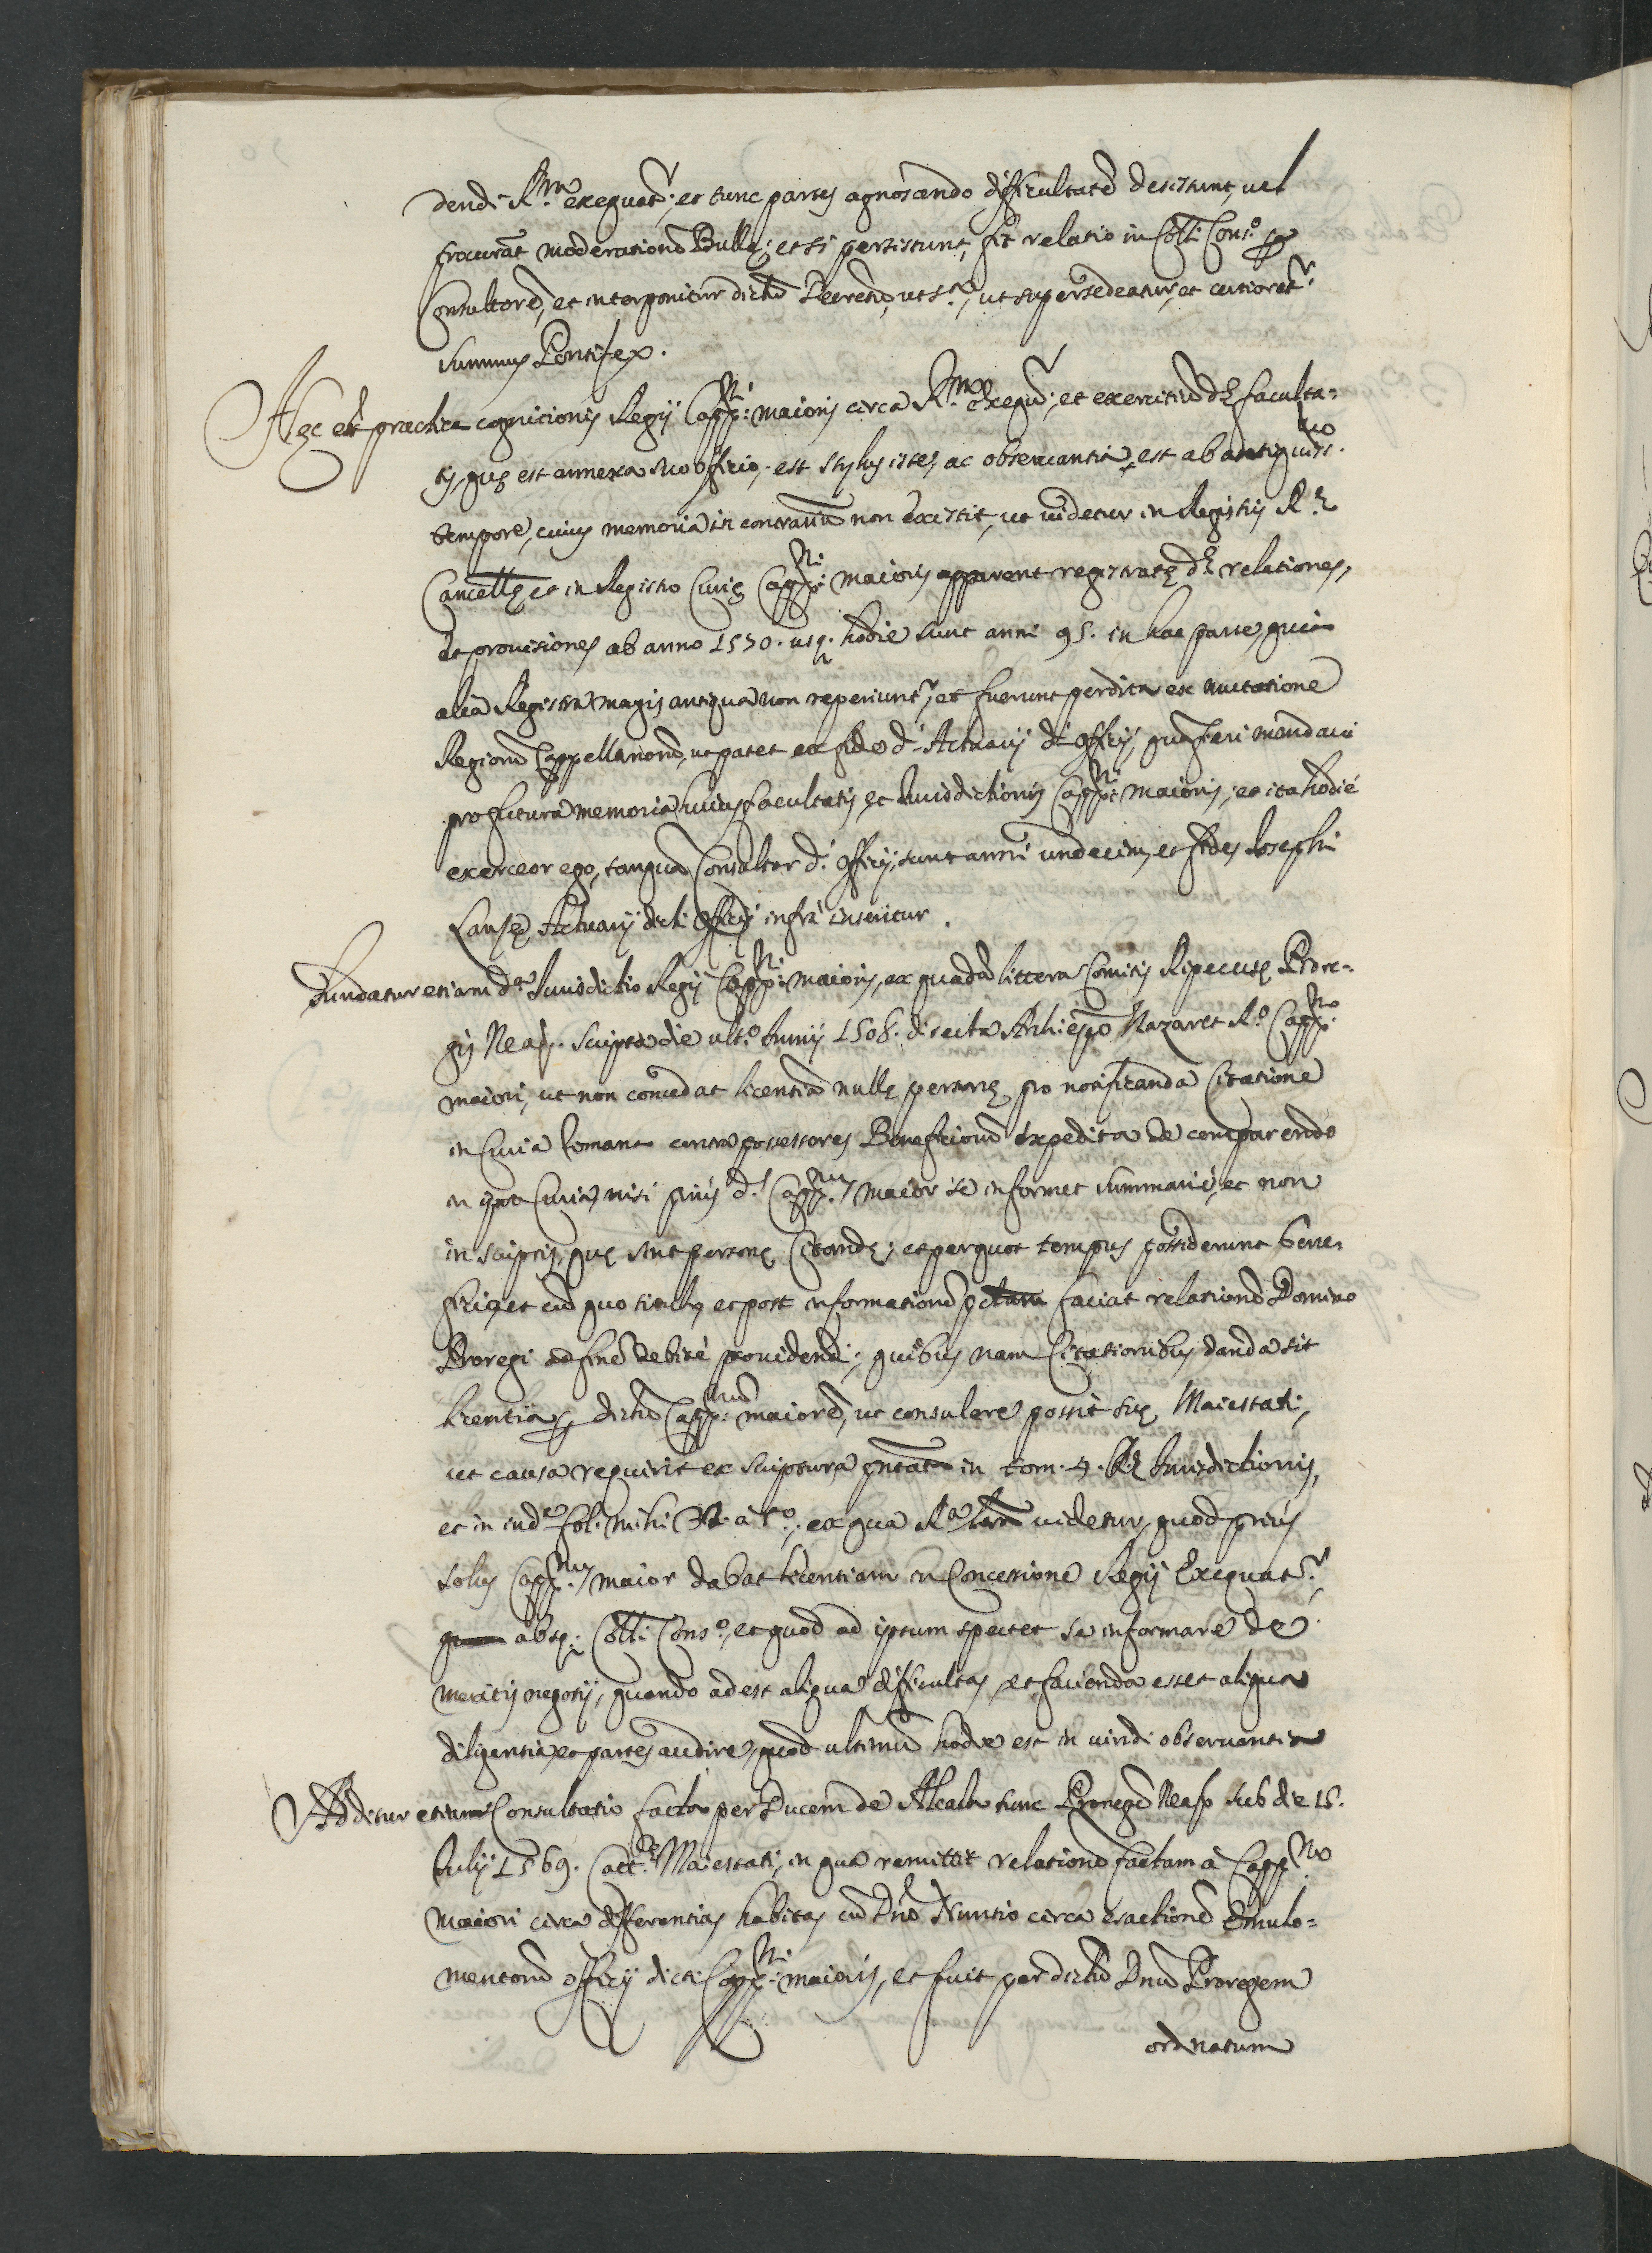 dendi R.um exequat.r; et tunc partes agnoscendo difficultatẽ desistunt, uel
procurãt moderationẽ Bullę; et si persistunt, fit relatio in Coll̃i Cons.o p
Consultorẽ, et interponitur dictũ Decretũ, ut s.a, ut supersedeatur, et certioret.r
summus Pontifex.
Hęc est practica cognitionis Regij Capp.ni maioris circa R.um exequat.r, et exercitiũ d.ę faculta=
tis, quę est annexa suo officio, est stylus iste, ac obseruantia, est ab antiquiss.mo
tempore, cuius memoria in contrariũ non existit, ut uidetur in Registris R.ę
Cancell̃ę et in Registro Curię Capp.ni maioris apparent registratę d.ę relationes,
et prouisiones ab anno 1570. usq. hodie sunt anni 95. in hac parte, quia
alia Registra magis antiqua non reperiunt.r, et fuerunt perdita ex mutatione
Regiorũ Cappellanorũ, ut patet ex fide d.i Actuarij d.i officij, quã fieri mandaui
pro futura memoria huius facultatis, et Iurisdictionis Capp.ni maioris, et ita hodié
exerceor ego, tanquã Consultor d.i officij, sunt anni undecim, et fides Iosephi
Lansę Actuarij dicti officij infrà inseritur.
Fundatur etiam d.a Iurisdictio Regij Capp.ni maioris, ex quadã littera Comitis Ripecursę Prore=
gis Neap. scripta die ult.o Iunij 1508. directa Archiep̃o Nazaret R.o Capp.no
maiori, ut non concedat licentiã nullę personę pro notificanda Citatione
in Curia Romana contra possessores Beneficiorũ expedita de comparendo
in ipsa Curia, nisi priùs d.s Capp.nus maior se informet summariè, et non
in scriptis, quę sint personę Citandę; et per quot tempus possiderunt bene=
ficia, et cũ quo titulo, et post informationẽ faciat relationẽ Domino
Proregi ad finẽ debitè prouidendi; quibus nam Citationibus danda sit
licentia p dictũ Capp.num maiorẽ, ut consulere possit suę Maiestati,
ut causa requirit ex scriptura pñtata in tom. 4. R.ę Iurisdictionis,
et in ind.e fol. mihi a t.o, ex qua R.a uidetur, quod priùs
solus Capp.nus maior dabat licentiam in Concessione Regij Exequat.r
absq. Coll̃i Cons.o, et quod ad ipsum spectet se informare de
meritis negotij, quando adest aliqua difficultas, et facienda esset aliqua
diligentia, et partes audire, quod ultimũ hodie est in uiridi obseruantia
Additur etiam Consultatio facta per Ducem de Alcala tunc Proregẽ Neap. sub die 15.
Iulij 1569. Catt.ę Maiestati, in qua remittit relationẽ factam à Capp.no
maiori circa differentias habitas cũ D.no Nuntio circa exactionẽ Emulo=
mentorũ officij dicti Capp.ni maioris, et fuit per dictũ Dnũ Proregem
ordinatum